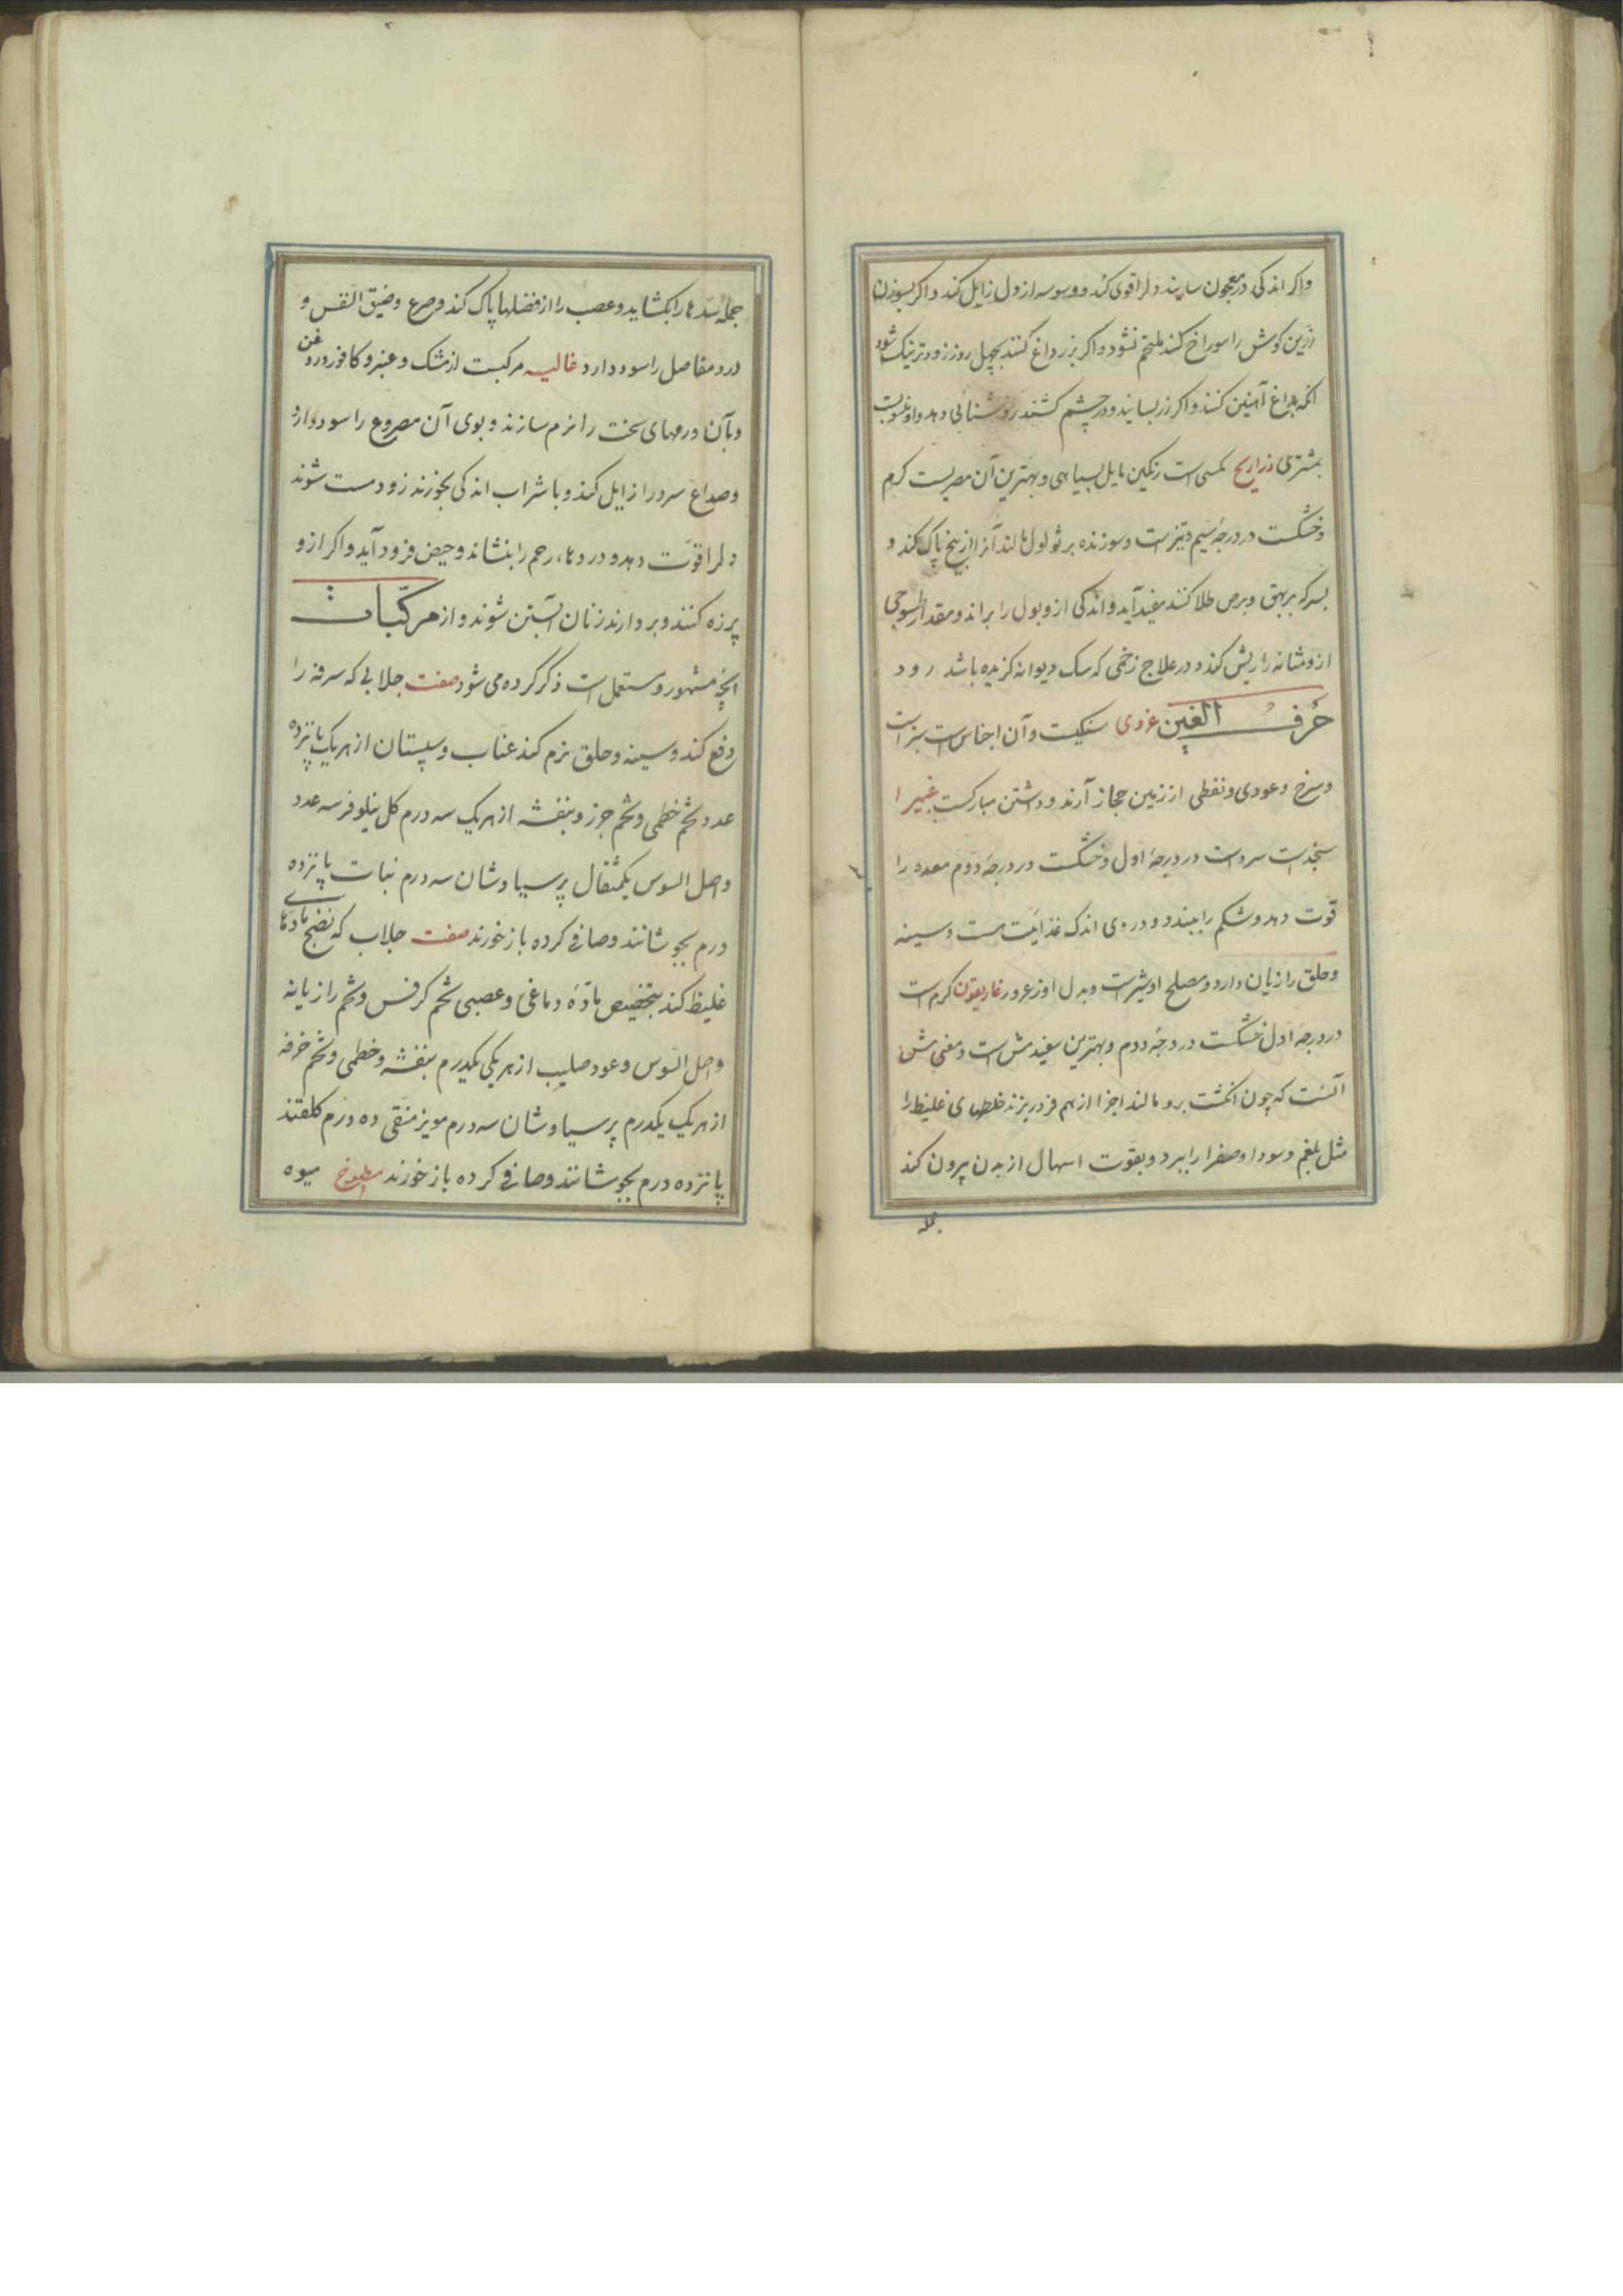 واکر اندکی در معجون سایند دلرا قوی کند و وسوسه از دل زایل کند و اکر بسوزن
زرین کوش را سوراخ کنند ملتحم نشود و اکر بزر داغ کنند بچهل روز زودتر نیک شود
انکه بداغ آهنین کنند و اکر زر بسایند و در چشم کشند روشنایی دهد و او منسوبست
بمشتری ذراریح مکسی است رنکین مایل بسیاهی و بهترین آن مصریست کرم
و خشکست در درجهٔ سیم و تیزست و سوزنده بر ثولول مالند آنرا از بیخ پاک کند و
بسرکه بر بهق و برص طلا کنند مفید آید و اندکی از و بول را براند و مقدار طسوجی
از و مثانه را ریش کند و در علاج زخمی که سک دیوانه کزیده باشد رود
حرف الغین غروی سنکیست و آن اجناس است سبز است
و سرخ و عودی و نفطی از زمین حجاز آرند و داشتن مبارکست غبیرا
سنجد است سرد است در درجهٔ اول و خشکست در درجهٔ دوم معده را
قوّت دهد و شکم را ببندد و در وی اندک غذائیت هست و سینه
و حلق را زیان دارد و مصلح او شیر است و بدل او زعرور غاریقون کرم است
در درجهٔ اول خشکست در درجهٔ دوم و بهترین سفید هش است و معنی هش
آنست که چون انکشت برو مالند اجزا از هم فرو ریزند خلطهای غلیظ را
مثل بلغم و سودا و صفرا را ببرد و بقوّت اسهال از بدن بیرون کند
جمله
جمله سدها را بکشاید و عصب را از فضلها پاک کند و صرع و ضیق النفس و
درد مفاصل را سود دارد غالیه مرکبست از مشک و عنبر و کافور و روغن
و بآن ورمهای سخت را نرم سازند و بوی آن مصروع را سود دارد
و صداع سرد را زایل کند و با شراب اندکی بخورند زود مست شوند
دلرا قوّت دهد و دردهاء رحم را بنشاند و حیض فرود آید و اکر از و
پرزه کنند و بردارند زنان آبستن شوند و از مرکّبات
انچه مشهور و مستعمل است ذکر کرده می شود صفت جلابی که سرفه را
دفع کند و سینه و حلق نرم کند عناب و سپستان از هر یک پانزده
عدد تخم خطمی و تخم خبز و بنفشه از هر یک سه درم کل نیلوفر سه عدد
و اصل السوس یکمثقال پرسیاوشان سه درم نبات پانزده
درم بجوشانند و صافی کرده باز خورند صفت جلاب که نضج مادّهای
غلیظ کند بتخصیص مادّهٔ دماغی و عصبی تخم کرفس و تخم رازیانه
و اصل السوس و عود صلیب از هر یکی یکدرم بنفشه و خطمی و تخم خرفه
از هر یک یکدرم پرسیاوشان سه درم مویز منقی ده درم کلقند
پانزده درم بجوشانند و صافی کرده باز خورند مطبوخ میوه